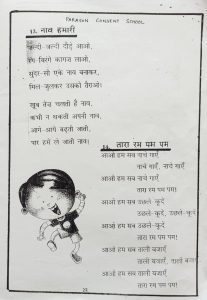 PARAGON CONVENT SCHOOL
13. नाव हमारी
जल्दी जल्दी दौड़े आओ,
रंग बिरंगे कागज लाओ,
सुंदर सी एक नाव बनाकर,
मिल जुलकर उसको तैराओ।
खूब तेज चलती है नाव,
कभी न थकती अपनी नाव,
आगे-आगे बढ़ती जाती,
पार हमें ले जाती नाव।
14. तारा रम पम पम
आओ हम सब नाचे गाएँ
नाचे गाएँ, नाचे गाएँ
आओ हम सब नाचे गाएँ
तारा रम पम पम!
आओ हम सब उछले-कूदें
उछले-कूदें, उछले-कूदें
आओ हम सब उछले-कूदें
तारा रम पम पम!
आओ हम सब ताली बजाएँ
ताली बजाएँ, ताली बजाएँ
आओ हम सब ताली बजाएँ
तारा रम पम पम!